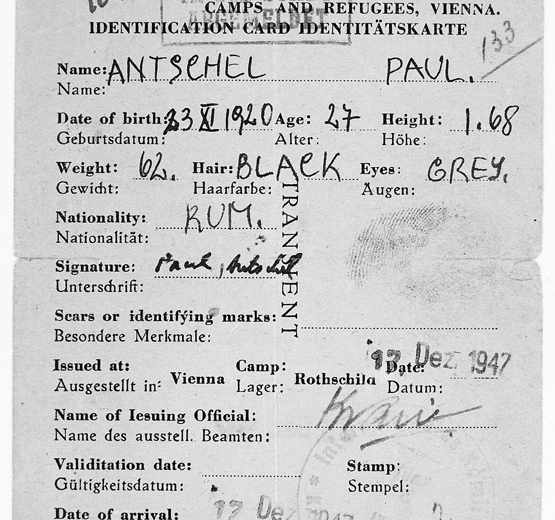 CAMPS AND REFUGEES, VIENNA.
ABGEMELDET
IDENTIFICATION CARD IDENTITÄTSKARTE
133
Name: ANTSCHEL PAUL.
Name:
Date of birth: 23 XI 1920 Age: 27 Height: 1.68
Geburtsdatum: Alter: Höhe:
Weight: 62. Hair: BLACK Eyes: GREY.
Gewicht: Haarfarbe: Augen:
TRANSIENT
Nationality: RUM.
Nationalität:
Signature: Paul Antschel
Unterschrift:
Scars or identifying marks:
Besondere Merkmale:
Issued at: Vienna Camp: Rothschild Date: 17 Dez. 1947
Ausgestellt in: Lager: Datum:
Name of Iesuing Official:
Name des ausstell. Beamten:
Validitation date: Stamp:
Gültigkeitsdatum: Stempel:
Date of arrival: 17 Dez 1947